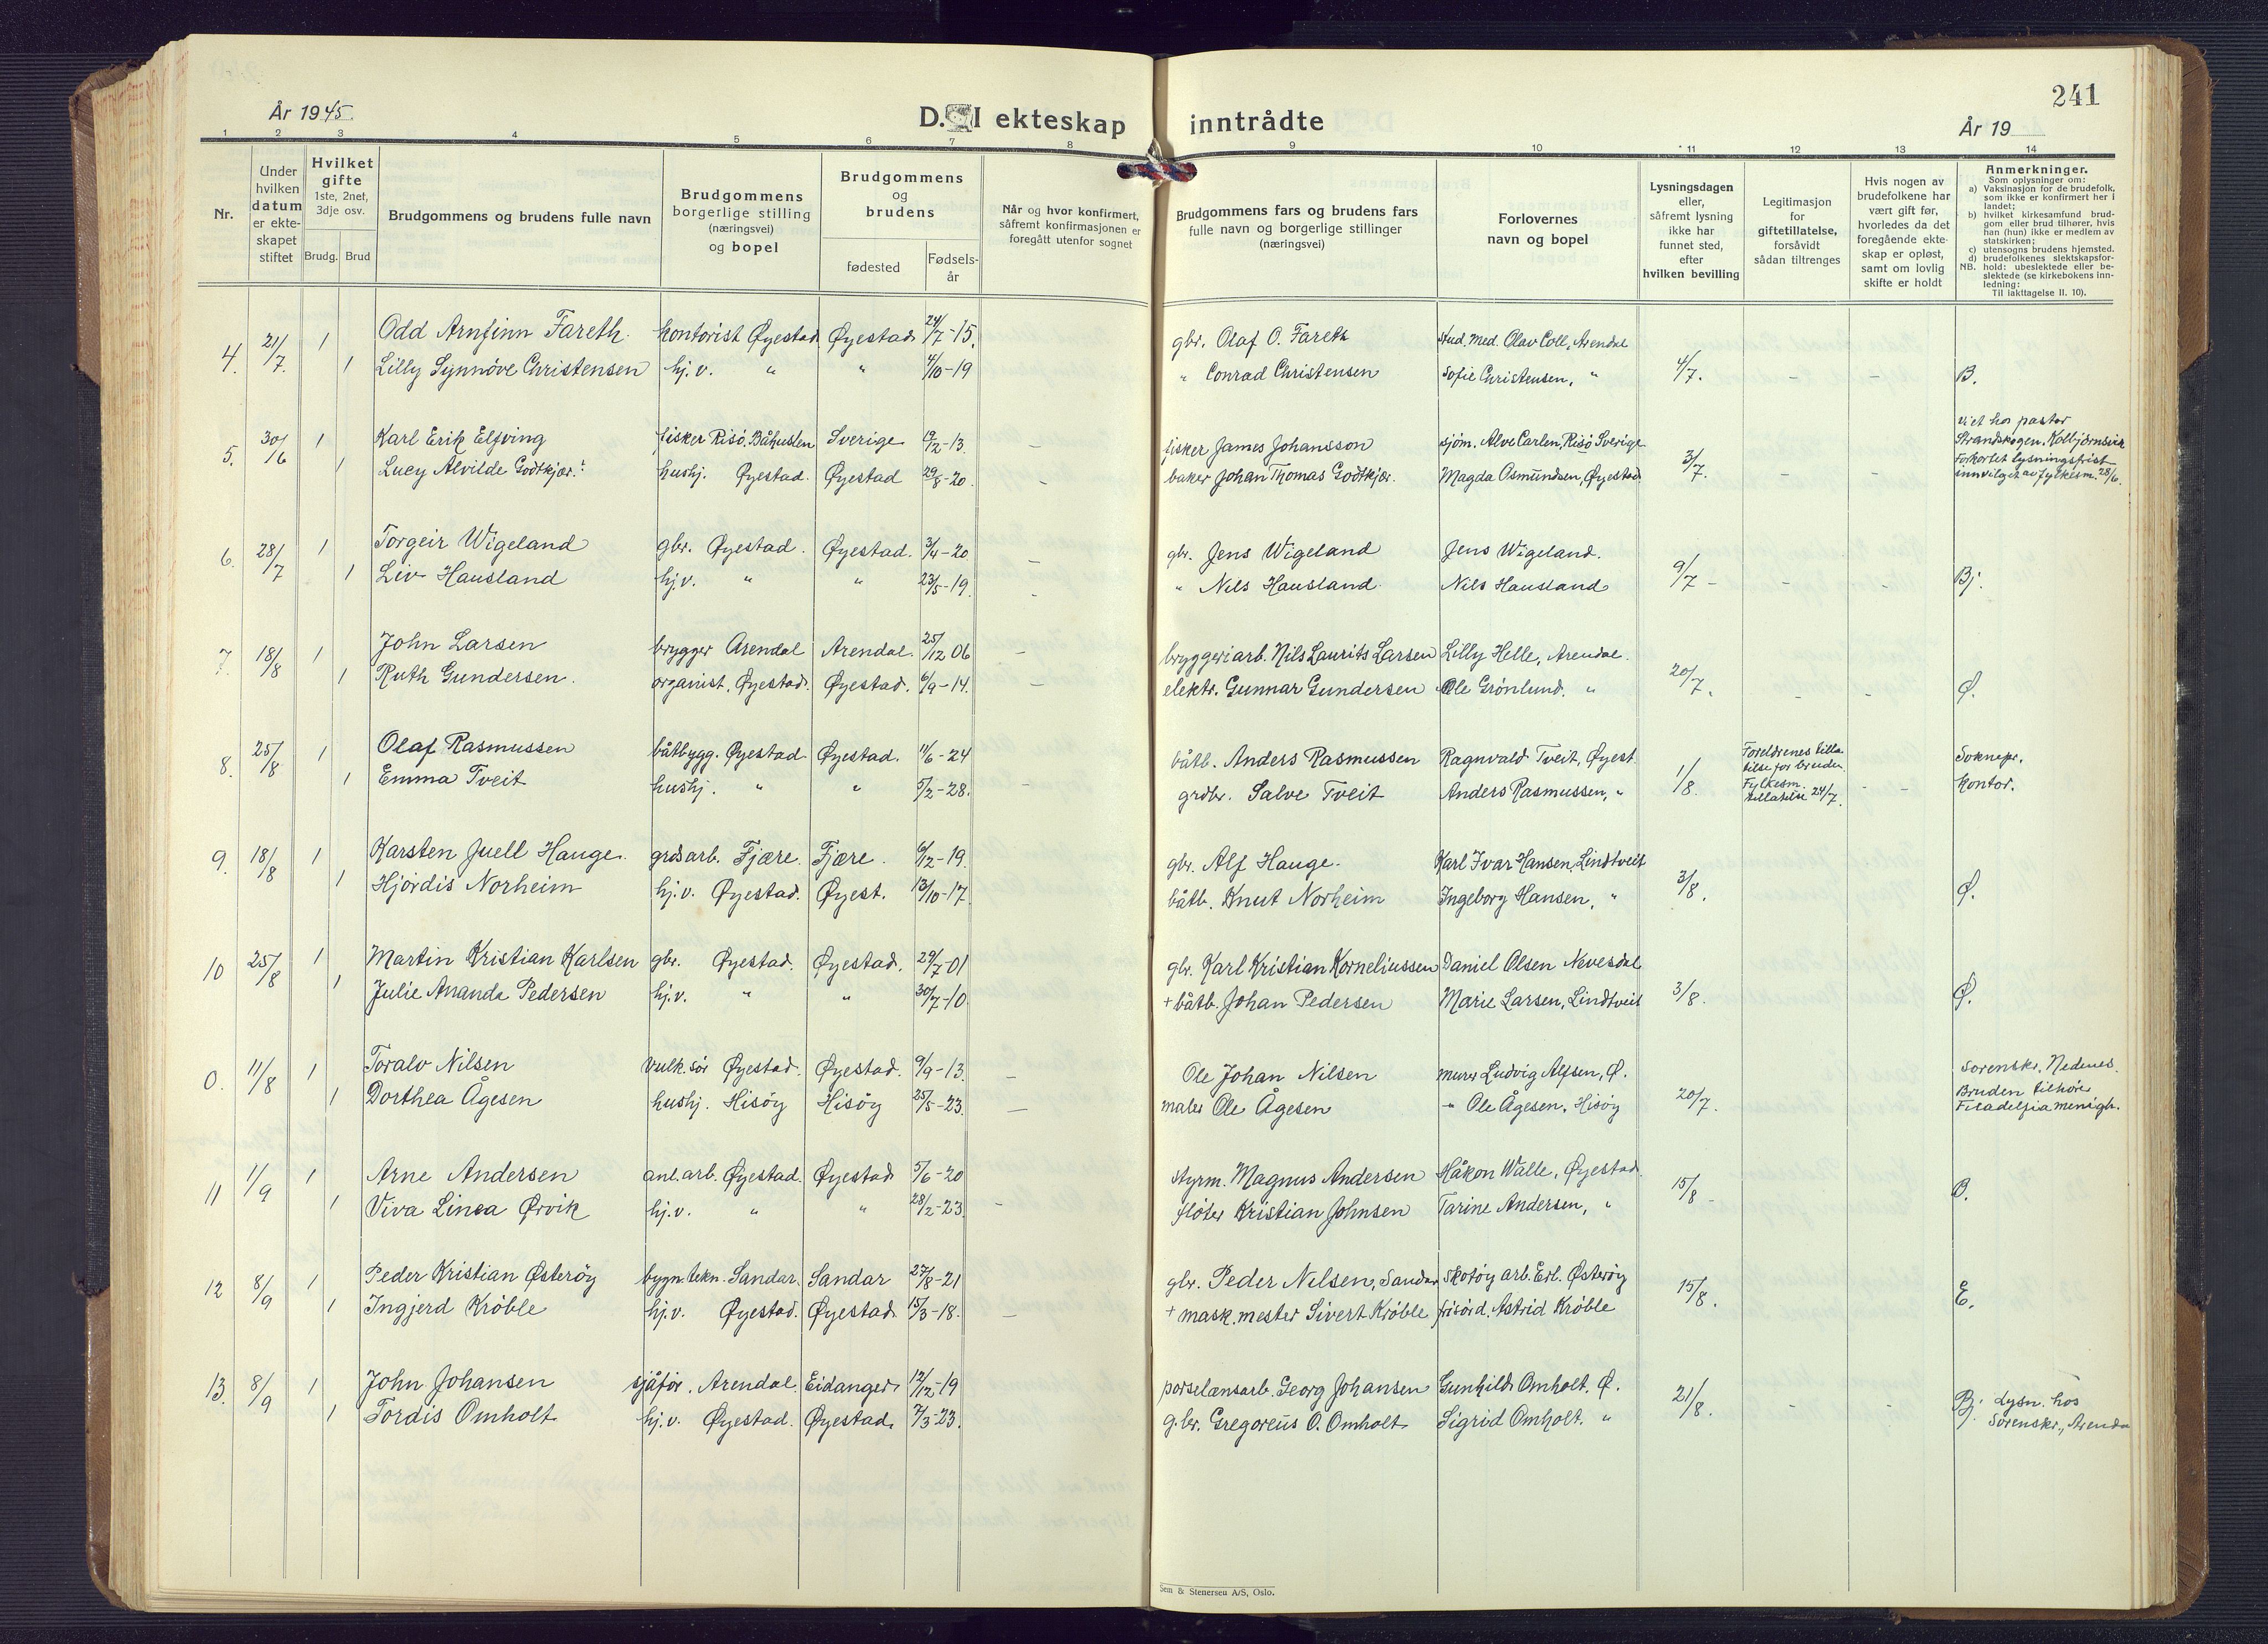 241
År 1945.
D. I ekteskap inntrådte
År 19
1 2 3 4 5 6 7 8 9 10 11 12 13 14
Nr.
Under hvilken datum er ekteskapet stiftet
Hvilket gifte 1ste, 2net, 3dje osv.
Brudg. Brud
Brudgommens og brudens fulle navn
Brudgommens borgerlige stilling (næringsvei) og bopel
Brudgommens og brudens
fødested
Fødselsår
Når og hvor konfirmert, såfremt konfirmasjonen er foregått utenfor sognet
Brudgommens fars og brudens fars fulle navn og borgerlige stillinger (næringsvei)
Forlovernes navn og bopel
Lysningsdagen eller, såfremt lysning ikke har funnet sted, efter hvilken bevilling
Legitimasjon for giftetillatelse, forsåvidt sådan tiltrenges
Hvis nogen av brudefolkene har vært gift før, hvorledes da det foregående ekteskap er opløst, samt om lovlig skifte er holdt
Anmerkninger.
Som oplysninger om:
a) Vaksinasjon for de brudefolk, som ikke er konfirmert her i landet;
b) hvilket kirkesamfund brudgom eller brud tilhører, hvis han (hun) ikke er medlem av statskirken;
c) utensogns brudens hjemsted.
d) brudefolkenes slektskapsforhold: ubeslektede eller beslektede (se kirkebokens innledning:
NB.
Til iakttagelse II. 10).
4. 21/7. 1 Odd Arnfinn Fareth. kontorist Øyestad Øyestad 24/7-15. gbr. Olaf O. Fareth stud. med. Olav Coll, Arendal
1 Lilly Synnøve Christensen hj.v. " " 4/10-19 " Conrad Christensen Sofie Christensen, " 4/7. - - B.
5. 30/6 1 Karl Erik Elfving fisker Risö, Båhuslen Sverige /2-13. - fisker James Johansson sjøm. Alve Carlen, Risö Sverige
1 Lucy Alvilde Godtkjær. hushj. Øyestad. Øyestad 29/8-20. - baker Johan Thomas Godtkjær. Magda Osmundsen, Øyestad. 3/7.
viet hos pastor
Strandskogen. Kolbjørnsvik
Forkortet lysningsfrist
innvilget av fylkesm. 28/6.
6. 28/7 1 Torgeir Wigeland gbr. Øyestad. Øyestad. 3/4-20 - gbr. Jens Wigeland Jens Wigeland.
1 Liv Hausland hj.v. " " 23/5-19. - " Nils Hausland Nils Hausland 9/7 - - - Bj.
7. 18/8 1 John Larsen brygger Arendal Arendal. 25/12 06 - bryggeriarb. Nils Laurits Larsen Lilly Helle, Arendal.
1 Ruth Gundersen. organist, Øyestad. Øyestad. 6/9-14. - elektr. Gunnar Gundersen Ole Grönlund. " 20/7. - - Ø.
8. 25/8 1 Olaf Rasmussen båtbygg. Øyestad Øyestad. 11/6-24 båtb. Anders Rasmussen Ragnvald Tveit, Øyest.
1 Emma Tveit hushj. " " 5/2-28. - grdbr. Salve Tveit Anders Rasmussen, " 1/8.
Foreldrenes tilla-
telse for bruden.
Fylkesm.
tillatelse 24/7.
- -
Soknepr.
kontor.
9. 18/8 1 Karsten Juell Hauge. grdsarb. Fjære. Fjære. 6/12-19. gbr. Alf Hauge. Karl Ivar Hansen, Lindtveit
1 Hjördis Norheim hj.v. Øyestad. Øyest. 13/10-17. båtb. Knut Norheim Ingeborg Hansen, " 3/8. Ø.
10 25/8 1 Martin Kristian Karlsen gbr. Øyestad. Øyestad. 29/7-01 gbr. Karl Kristian Korneliussen Daniel Olsen Nevesdal
1 Julie Ananda Pedersen hj.v. " " 30/7-10. + båtb. Johan Pedersen Marie Larsen, Lindtveit 3/8. Ø.
0. 11/8 1 Toralv Nilsen vulk.sör Øyestad. Øyestad. 9/9-13. - Ole Johan Nilsen murer Ludvig Alfsen, Ø.
1 Dorthea Ågesen hushj. Hisöy Hisöy 25/5-23. - maler Ole Ågesen " Ole Ågesen, Hisöy 20/7.
Sorenskr. Nedenes.
Bruden tilhörer
Filadelfia menigh.
11 1/9 1 Arne Andersen anl.arb. Øyestad. Øyestad 5/6-20 styrm. Magnus Andersen Håkon Walle, Øyestad.
1 Viva Linea Ørvik hj.v. " " 28/2-23. - fløter Kristian Johnsen Tarine Andersen, " 15/8 -
12 8/9 1 Peder Kristian Østeröy bygn.tekn. Sandar. Sandar 27/8-21 gbr. Peder Nilsen, Sandar skotöy arb. Erl. Østeröy
1 Ingjerd Kröble hj.v. Øyestad. Øyestad. 15/3-18. - + mask.mester Sivert Kröble frisörd. Astrid Kröble 15/8. E.
13. 8/9 1 John Johansen sjåför. Arendal. Eidanger 12/12-19 porselænsarb. Georg Johansen Gunhild Omholt. Ø.
1 Tordis Omholt hj.v. Øyestad. Øyestad. 7/3-23. gbr. Gregorius O. Omholt Sigrid Omholt. " 21/8. - - Bj. Lysn. hos
Sorenskr., Arenda
Sem & Stenersen A/S, Oslo.